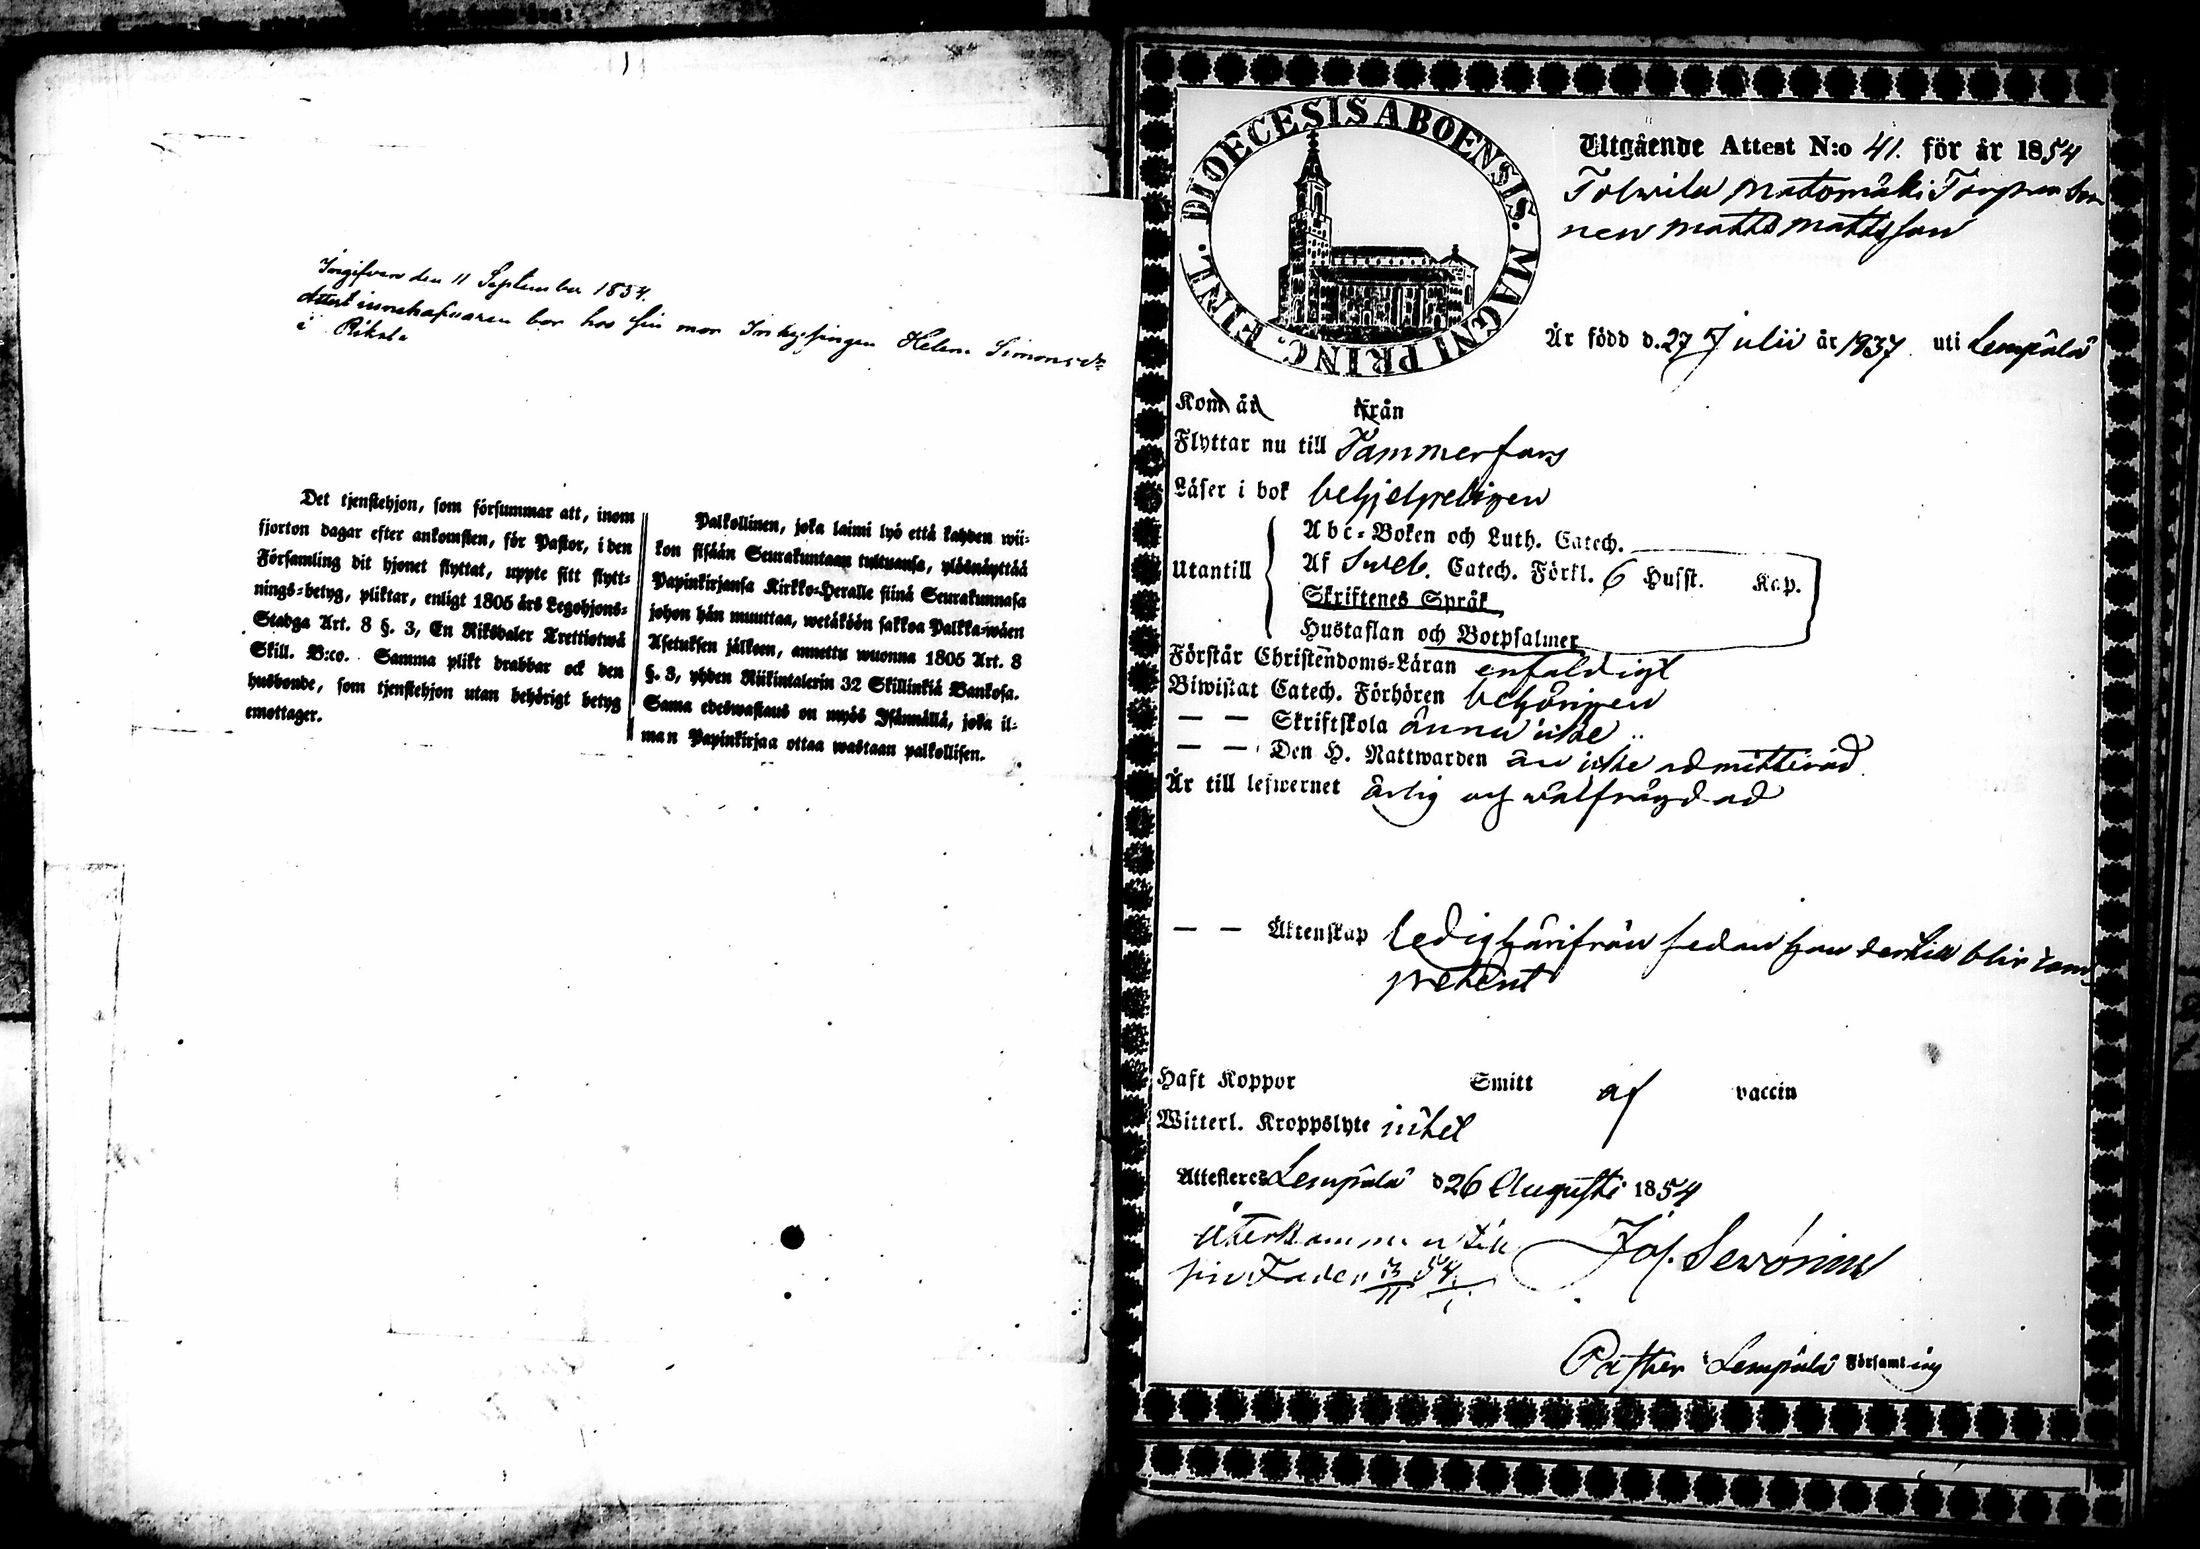 Ingifven den 11 September 1854.
Attest innehafvaren bor hos sin mor Inhysingen Helena Simonsdr
i
Det tjenstehjon, som försummar att, inom
fjorton dagar efter ankomsten, för Pastor, i den
Församling dit hjonet flyttat, uppte sitt flytt-
nings-betyg, pliktar, enligt 1805 års Legohjons-
Stadga Art. 8 §. 3, En Riksdaler Trettiotwå
Skill. B:co. Samma plikt drabbar ock den
husbonde, som tjenstehjon utan behörigt betyg
emottager.
Palkollinen, joka laimi lyö että kahden wii-
kon sisään Seurakuntaan tultuansa, ylösnäyttää
Papinkirjansa Kirkko-Heralle siinä Seurakunnasa
johon hän muuttaa, wetäköön sakkoa Palkka-wäen
Asetuksen jälkeen, annettu wuonna 1805 Art. 8
§. 3, yhden Riikintalerin 32 Skillinkiä Bankosa.
Sama edeswastaus on myös Isännällä, joka il-
man Papinkirjaa ottaa wastaan palkollisen.
DIOECESIS ABOENSIS. MAGNI PRINC. FINL.
Utgående Attest N:o 41. för år 1854
Tolvila Matomäki Torpare So
nen Matts Mattsson
Är född d. 27 Julii år 1837 uti Lempälä
Kom år från
Flyttar nu till Tammerfors
Läser i bok behjelpeligen
Utantill
Abc-Boken och Luth. Catech.
Af Sweb. Catech. Förkl. 6 Husst. Kap.
Skriftenes Språk
Hustaflan och Botpsalmer
Förstår Christendoms-Läran enfaldigt
Biwistat Catech. Förhören behörigen
— — Skriftskola ännu icke
— — Den H. Nattwarden är icke admitterad
Är till lefwernet ärlig och wälfrägdad
— — Äktenskap ledig härifrån sedan han dertill blir com
petent
Haft Koppor Smitt af vaccin
Witterl. Kroppslyte intet
Attesteres Lempälä d 26 Augusti 1854
Återkommen till
sin Fader 3/11 54
Jos. Sevónius
Pastor i Lempälä Församling